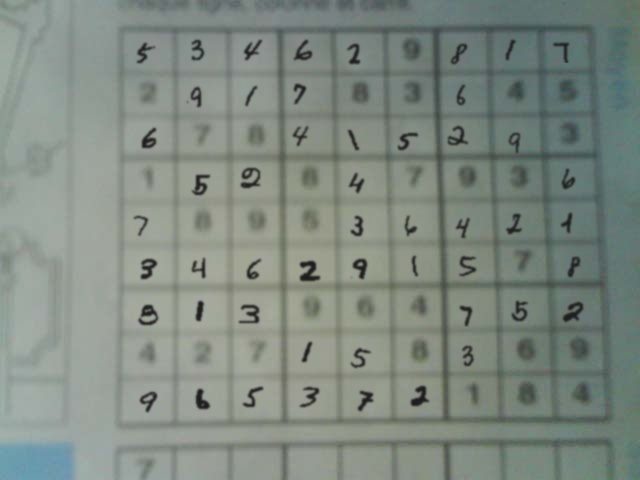 chaque ligne, colonne et carré.
Moyen
5 3 4 6 2 9 8 1 7
2 9 1 7 8 3 6 4 5
6 7 8 4 1 5 2 9 3
1 5 2 8 4 7 9 3 6
7 8 9 5 3 6 4 2 1
3 4 6 2 9 1 5 7 8
8 1 3 9 6 4 7 5 2
4 2 7 1 5 8 3 6 9
9 6 5 3 7 2 1 8 4
7